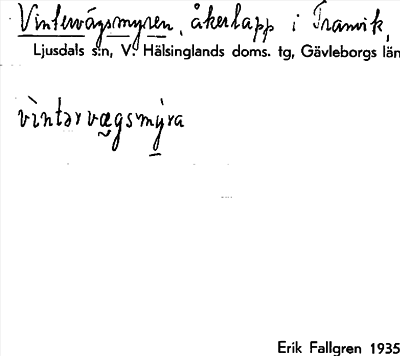 Vintervägsmyren, åkerlapp i Tranvik,
Ljusdals s:n, V. Hälsinglands doms. tg, Gävleborgs län
vìntərvæ̰gsmy̱ra
Erik Fallgren 1935